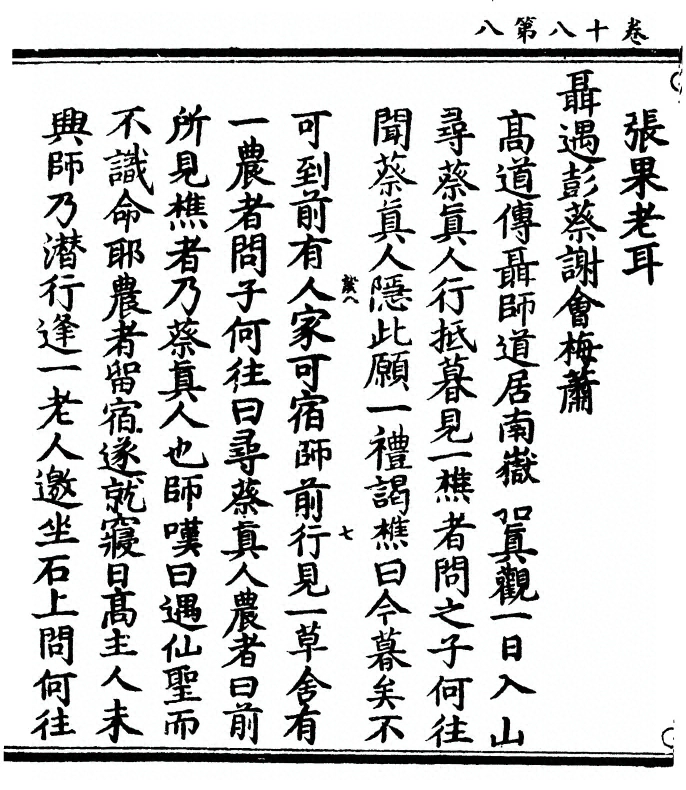 卷十八第八
張果老耳
聶遇彭蔡謝會梅蕭
髙道傳聶師道居南嶽招真觀一日入山
尋蔡真人行抵暮見一樵者問之子何往
聞蔡真人隱此願一禮謁樵曰今暮矣不
可到前有人家可宿師前行見一草舍有
一農者問子何往曰尋蔡真人農者曰前
所見樵者乃蔡真人也師嘆曰遇仙聖而
不識命耶農者留宿遂就寢日髙主人未
興師乃潜行逢一老人邀坐石上問何往
七